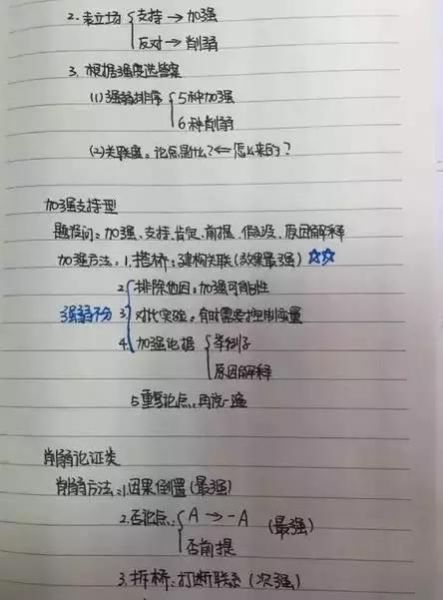 2. 表立场 支持 → 加强
反对 → 削弱
3. 根据强度选答案
(1) 强弱排序 5种加强
6种削弱
(2) 关联度。论点是什么? ← 怎么来的?
加强支持型
题发问: 加强、支持、肯定、前提、假设、原因解释
加强方法: 1. 搭桥: 建构关联 (效果最强) ☆☆
2. 排除他因, 加强可能性
强弱不分 3. 对比实验, 有时需要控制变量
4. 加强论据 举例子
原因解释
5 重复论点, 再说一遍
削弱论证类
削弱方法: 1. 因果倒置 (最强)
2. 否论点: A → -A (最强)
否前提
3. 拆桥: 打断联系 (次强)